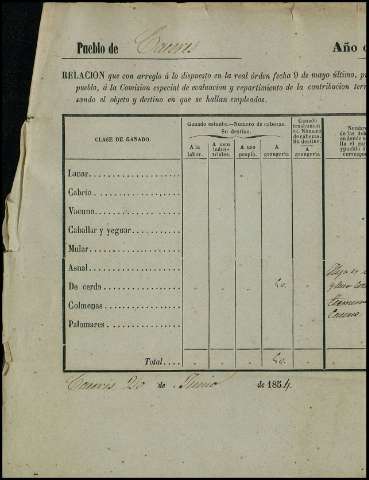 Pueblo de Caceres Año
RELACION que con arreglo á lo dispuesto en la real órden fecha 9 de mayo último, p
pueblo, á la Comision especial de evaluacion y repartimiento de la contribucion terr
sando el objeto y destino en que se hallan empleados.
CLASE DE GANADO.
Ganado estante.—Número de cabezas.
Su destino.
A la labor.
A usos industriales.
A uso propio.
A grangería.
Ganado
Número
de cabezas.
Su destino.
A grangería.
Lanar
Cabrío
Vacuno
Caballar y yeguar
Mular
Asnal
De cerda 40.
Colmenas
Palomares
Total 40.
Caceres 20 de Junio de 1854.